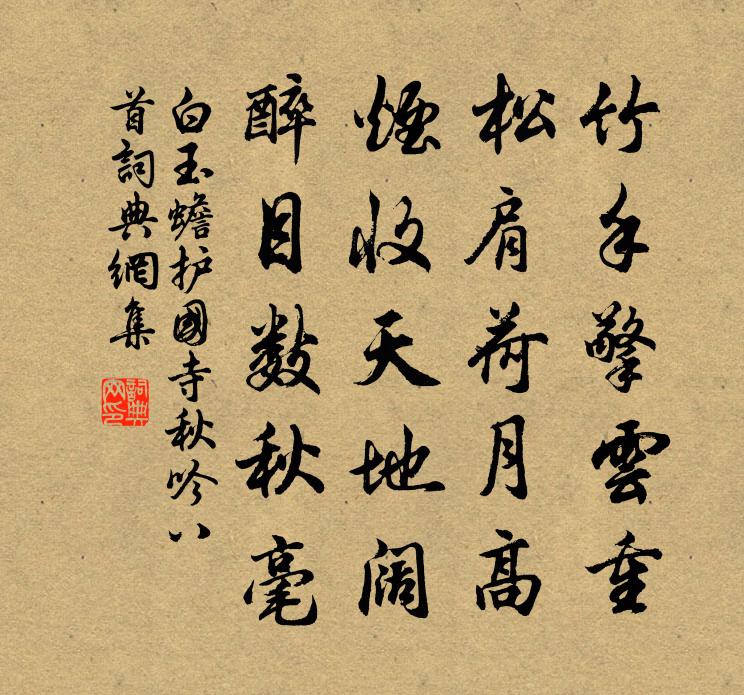 竹手擎雲重
松肩荷月高
煙收天地阔
醉目数秋毫
白玉蟾护國寺秋吟八
首詞典網集
詞典
网印